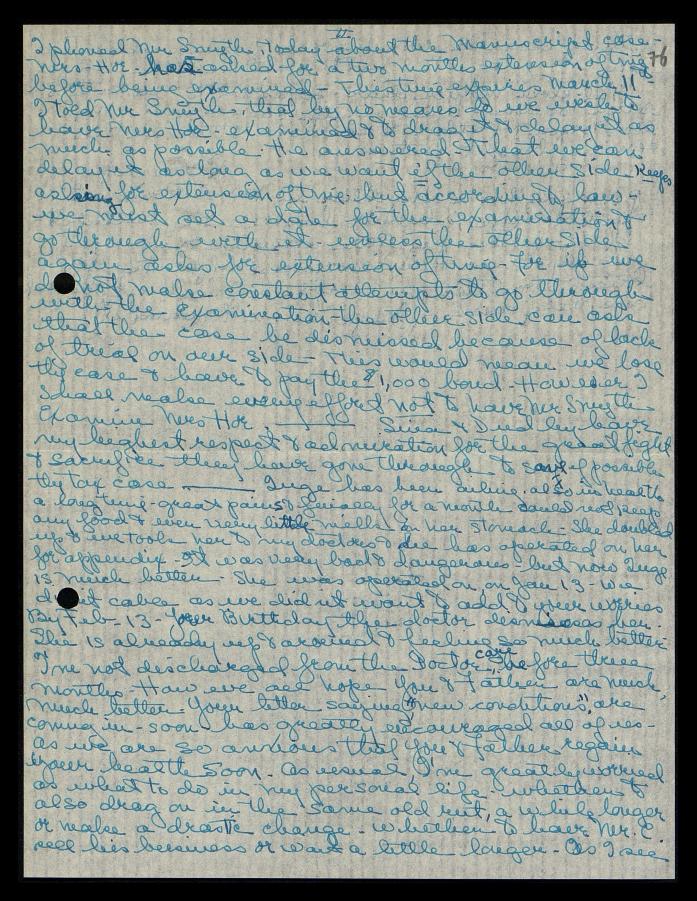 II
76
I phoned Mr Smyth, today about the Manuscript case-
Mrs-Hor. has asked for a two months extension of time
before being examined - This time expires March 11-
I told Mr Smythe, that by no means do we wish to
have Mrs Hor - examined & to drag it & delay it as
much as possible. He answered that we can
delay it as long as we want if the other side keeps
asking for extension of time. but according to law -
we must set a date for the examination &
go through with it - unless the other side
again asks for extension of time - For if we
do not make constant attempts to go through
with the examination - the other side can ask
that the case be dismissed because of lack
of trial on our side - This would mean we lose
the case & have to pay the $1,000 bond - However I
shall make every effort not to have Mr Smyth
Examine Mrs Hor. ——— & Dudley have
my highest respect & admiration for the great fight
& sacrifice they have gone through to save if possible
the tax case ——— Inge has been ailing also in health
a long time - great pains & finally for a month could not keep
any food & even very little milk in her stomach - She doubled
up & we took her to my doctors & he has operated on her
for appendix - It was very bad & dangerous - but now Inge
is much better - She was operated on on Jan 13 - We
didn't cable as we did not want to add to your worries
By Feb - 13 - Your Birthday the doctor dismisses her.
She is already up & around & feeling so much better
I'm not discharged from the Doctor's care before three
months - How we all hope you & Father are much,
much better. Your letter saying "new conditions" are
coming in - soon has greatly encouraged all of us -
as we are so anxious that you & father regain
your health soon. As usual, I'm greatly worried
as what to do in my personal life - whether to
also drag on in the same old rut, a while longer
or make a drastic change - whether to have Mr. C.
sell his business or wait a little longer - As I see